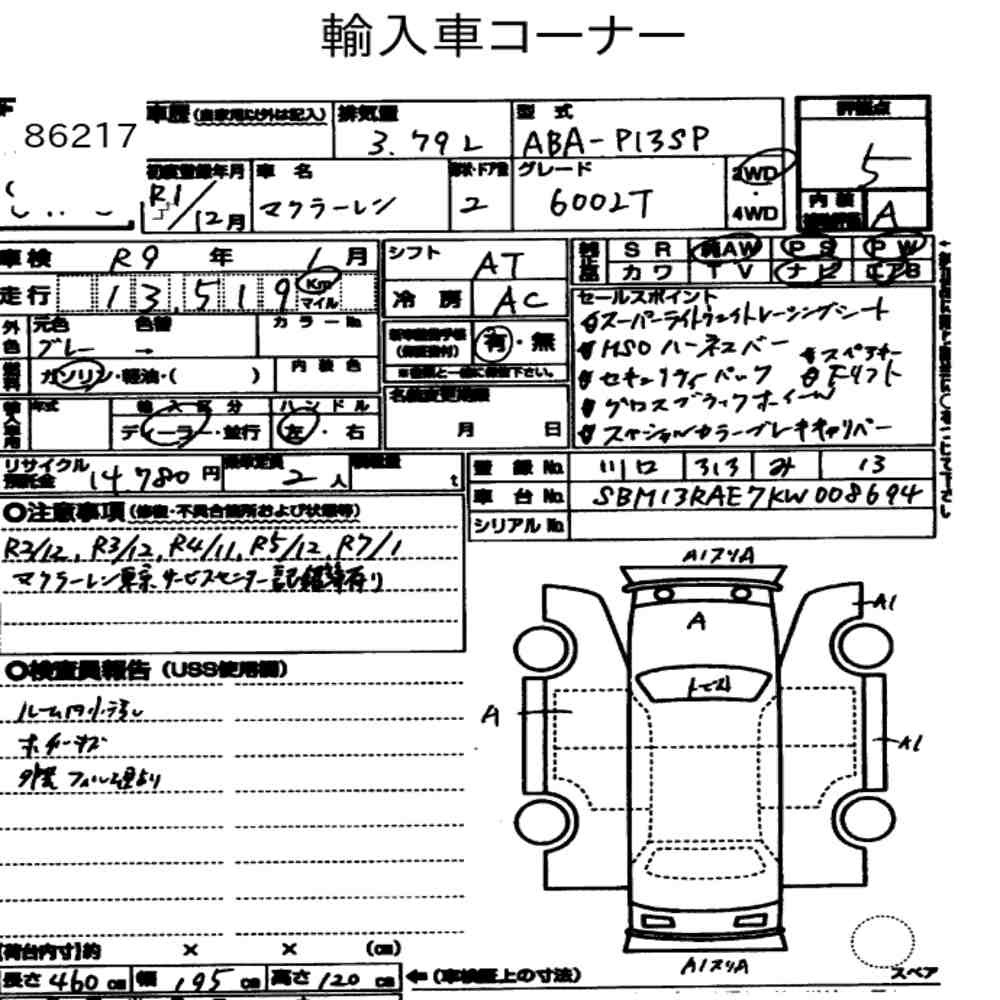 輸入車コーナー
86217
車歴 (自家用以外は記入) 排気量 3.79L 型式 ABA-P13SP 評価点 5
初度登録年月 R1/12月 車名 マクラーレン 形状・ドア数 2 グレード 600LT 2WD・4WD 内装 A
車検 R9年 1月 シフト AT SR 純AW PS PW
走行 13,519 Km マイル 冷房 AC カワ TV ナビ エアB
外色 元色 グレー 色替 → カラーNo
燃料 ガソリン・軽油・( ) 内装色
有・無
※書類と一緒に保管下さい。
セールスポイント
スーパーライトウェイトレーシングシート
MSO ハーネスバー
スペアキー
セキュリティパック
F.リフト
グロスブラックホイール
スペシャルカラーブレーキキャリパー
輸入車用 年式 輸入区分 ディーラー・並行 ハンドル 左・右
名義変更期限 月 日
リサイクル預託金 14,780円 乗車定員 2人 積載量 t
登録No. 川口 313 み 13
車台No. SBM13RAE7KW008694
シリアルNo.
○注意事項 (修復・不具合箇所および状態等)
R2/12, R3/12, R4/11, R5/12, R7/1
マクラーレン東京サービスセンター記録簿有り
○検査員報告 (USS使用欄)
ルーム内小汚れ
ホイールキズ
外装 フィルム貼り
A1スリA
A
A1
トビ石
A
A1
A1スリA
スペア
【荷台内寸】約 × × (cm)
長さ 460 cm 幅 195 cm 高さ 120 cm ←(車検証上の寸法)